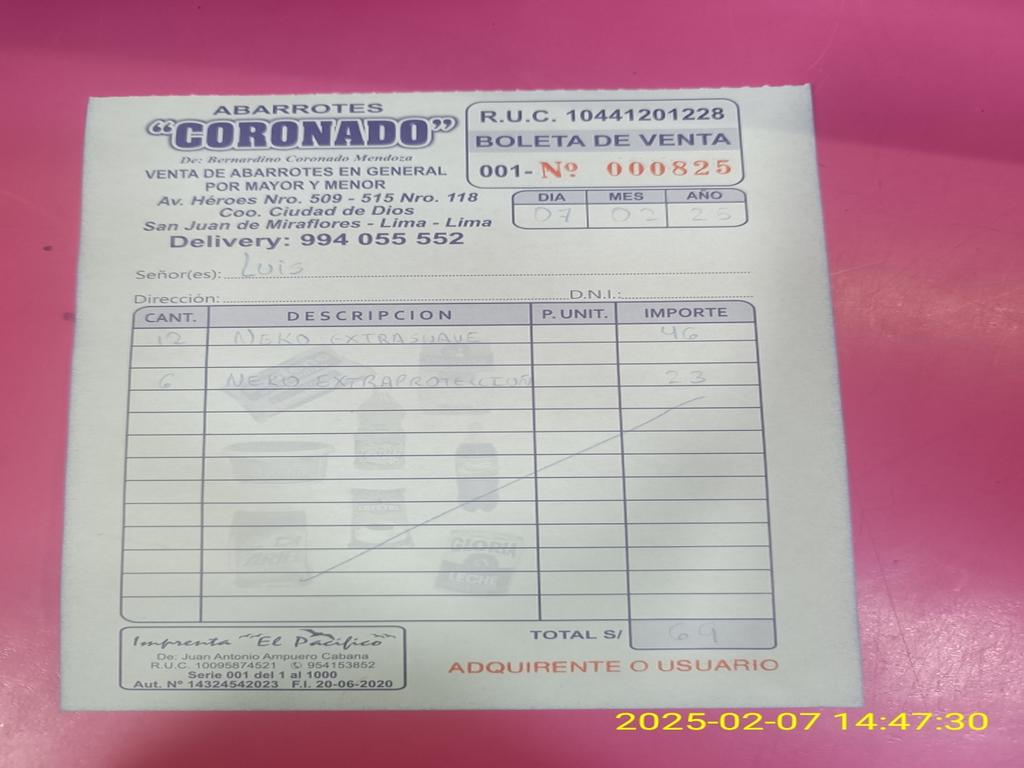 ABARROTES
"CORONADO"
De: Bernardino Coronado Mendoza
VENTA DE ABARROTES EN GENERAL
POR MAYOR Y MENOR
Av. Héroes Nro. 509 - 515 Nro. 118
Coo. Ciudad de Dios
San Juan de Miraflores - Lima - Lima
Delivery: 994 055 552
R.U.C. 10441201228
BOLETA DE VENTA
001- Nº 000825
DIA MES AÑO
07 02 25
Señor(es): Luis
Dirección: D.N.I.:
CANT. DESCRIPCION P. UNIT. IMPORTE
12 NEKO EXTRASUAVE 46
6 NEKO EXTRAPROTECCION 23
GLORIA
LECHE
TOTAL S/ 69
Imprenta "El Pacífico"
De: Juan Antonio Ampuero Cabana
R.U.C. 10095874521 954153852
Serie 001 del 1 al 1000
Aut. Nº 14324542023 F.I. 20-06-2020
ADQUIRENTE O USUARIO
2025-02-07 14:47:30